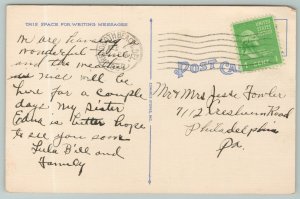 THIS SPACE FOR WRITING MESSAGES
We are having
wonderful time
and the weather
is nice will be
here for a couple
days my sister
Edna is better hope
to see you soon
Lula Bill and
Family
UNITED STATES
POSTAGE
1 CENT
POST CARD
Mr & Mrs Fowler
7112 Cresheim Road
Philadelphia
Pa.